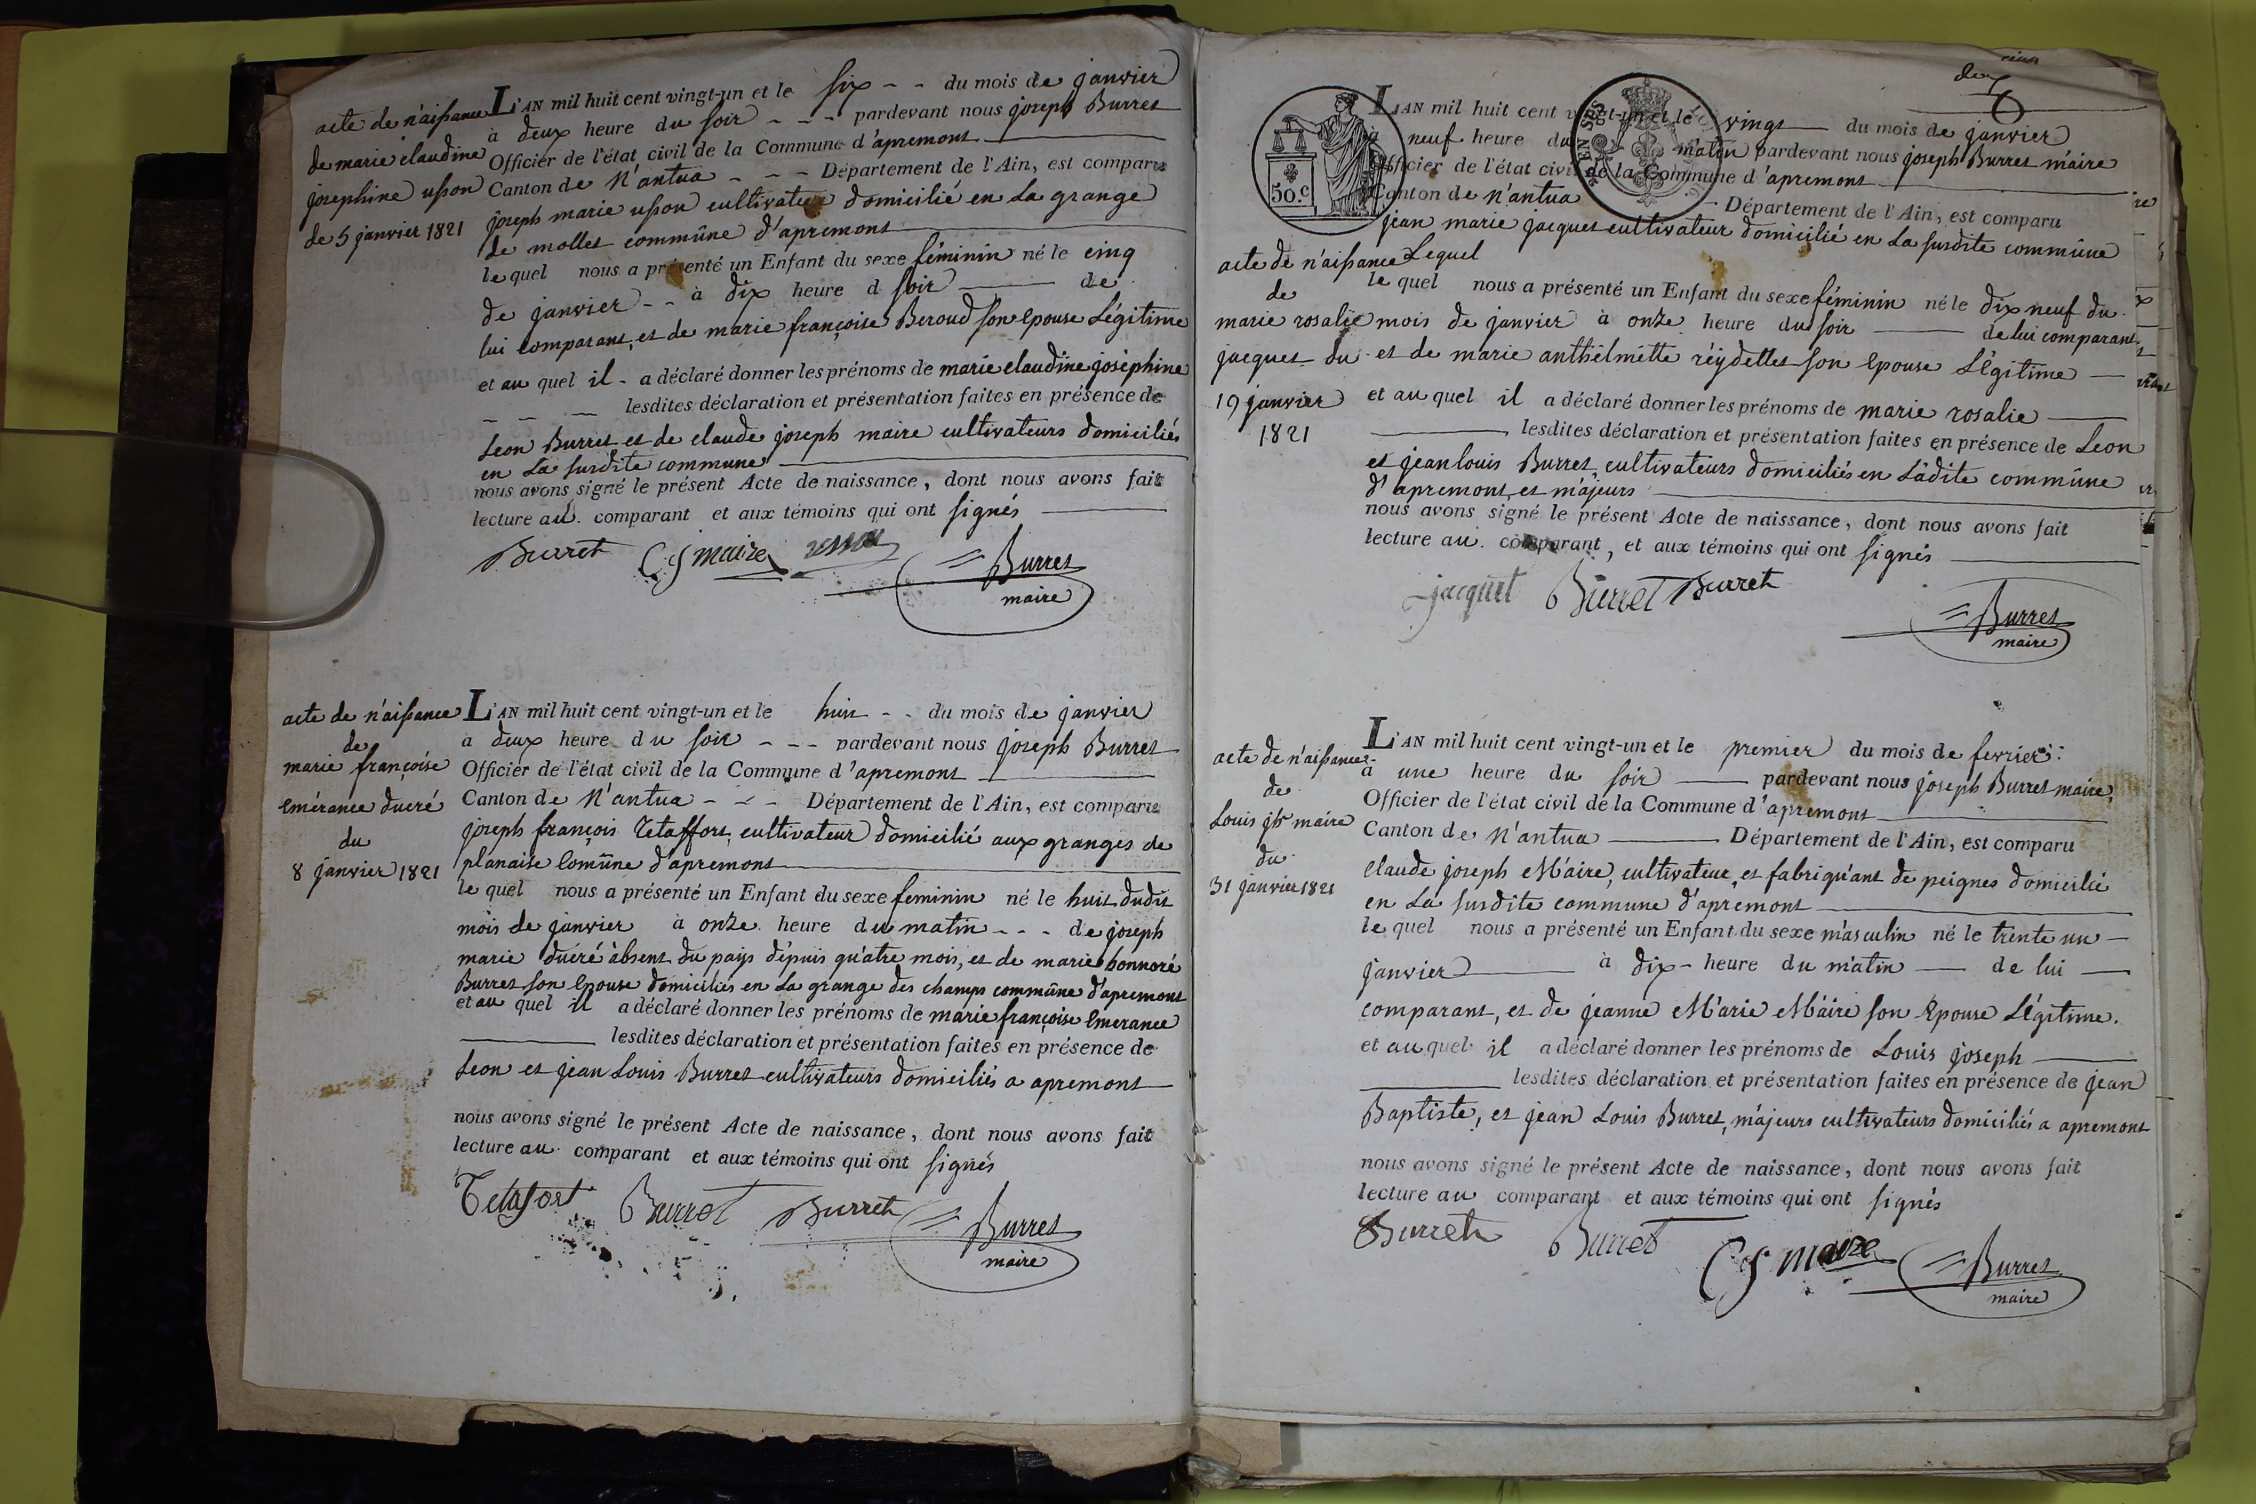 acte de n'aissance
de marie claudine
josephine usson
de 5 janvier 1821
L'AN mil huit cent vingt-un et le six - - du mois de janvier
à deux heure du soir - - - pardevant nous joseph Burret
Officier de l'état civil de la Commune d'apremont
Canton de N'antua - - - Département de l'Ain, est comparu
joseph marie usson cultivateur domicilié en La grange
de mollet commune d'apremont
le quel nous a présenté un Enfant du sexe féminin né le cinq
de janvier - - à dix heure d soir de
lui comparant, et de marie françoise Beroud son epouse Légitime
et au quel il - a déclaré donner les prénoms de marie claudine joséphine
lesdites déclaration et présentation faites en présence de
Leon Burret et de claude joseph maire cultivateurs domiciliés
en La susdite commune
nous avons signé le présent Acte de naissance, dont nous avons fait
lecture au comparant et aux témoins qui ont signés
Burret CJ maire usson Burret
maire
acte de n'aissance
de
marie françoise
emérance ducré
du
8 janvier 1821
L'AN mil huit cent vingt-un et le huit - - du mois de janvier
à deux heure du soir - - - pardevant nous joseph Burret
Officier de l'état civil de la Commune d'apremont
Canton de N'antua - - - Département de l'Ain, est comparu
joseph françois Tetaffort, cultivateur domicilié aux granges de
planaise Comûne d'apremont
le quel nous a présenté un Enfant du sexe feminin né le huit dudit
mois de janvier à onze heure du matin - - - de joseph
marie ducré àbsent du pays dépuis qu'atre mois, et de marie honnoré
Burret son epouse domiciliés en La grange des champs commûne d'apremont
et au quel il a déclaré donner les prénoms de marie françoise Emerance
lesdites déclaration et présentation faites en présence de
Leon et jean Louis Burret cultivateurs domiciliés a apremont
nous avons signé le présent Acte de naissance, dont nous avons fait
lecture au comparant et aux témoins qui ont signés
Tetafort Burret Burret Burret
maire
deux
50 c.
acte de n'aissance
de
marie rosalie
jacquet du
19 janvier
1821
L'AN mil huit cent vingt-un et le vingt du mois de janvier
à neuf heure du matin pardevant nous joseph Burret m'aire
Officier de l'état civil de la Commune d'apremont
Canton de N'antua - Département de l'Ain, est comparu
jean marie jacquet cultivateur domicilié en La susdite commûne
Lequel
le quel nous a présenté un Enfant du sexe féminin né le dix neuf du
mois de janvier à onze heure du soir de lui comparant
et de marie anthelmette réydellet son epouse Légitime
et au quel il a déclaré donner les prénoms de marie rosalie
lesdites déclaration et présentation faites en présence de Leon
et jean louis Burret, cultivateurs domiciliés en Ladite commûne
d'apremont, et m'ajeurs
nous avons signé le présent Acte de naissance, dont nous avons fait
lecture au comparant, et aux témoins qui ont signés
jacquet Burret Burret
Burret
maire
acte de n'aissance
de
Louis jph maire
du
31 janvier 1821
L'AN mil huit cent vingt-un et le premier du mois de fevrier
à une heure du soir pardevant nous joseph Burret maire,
Officier de l'état civil de la Commune d'apremont
Canton de N'antua Département de l'Ain, est comparu
Claude joseph M'aire, cultivateur, et fabriqu'ant de peignes domicilié
en La susdite commune d'apremont
le quel nous a présenté un Enfant du sexe m'asculin né le trente un
janvier à dix - heure du m'atin de lui
comparant, et de jeanne M'arie M'aire son Epouse Légitime.
et au quel il a déclaré donner les prénoms de Louis joseph
lesdites déclaration et présentation faites en présence de jean
Baptiste, et jean Louis Burret, m'ajeurs cultivateurs domiciliés a apremont
nous avons signé le présent Acte de naissance, dont nous avons fait
lecture au comparant et aux témoins qui ont signés
Burret Burret CJ maire Burret
maire